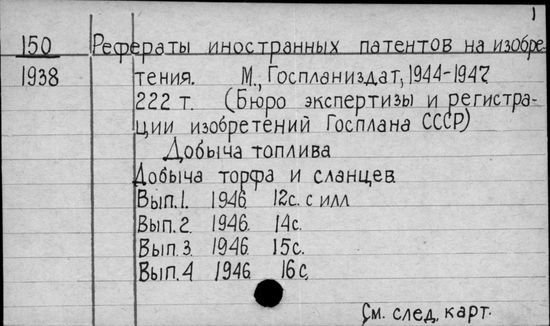 1
150 Рефераты иностранных патентов на изобре-
1938 тения. М., Госпланиздат, 1944-1947
222 т. (Бюро экспертизы и регистра-
ции изобретений Госплана СССР)
Добыча топлива
Добыча торфа и сланцев
Вып. 1. 1946 12с. с илл
Вып. 2. 1946. 14с.
Вып. 3. 1946. 15с.
Вып. 4 1946 16с.
См. след. карт.